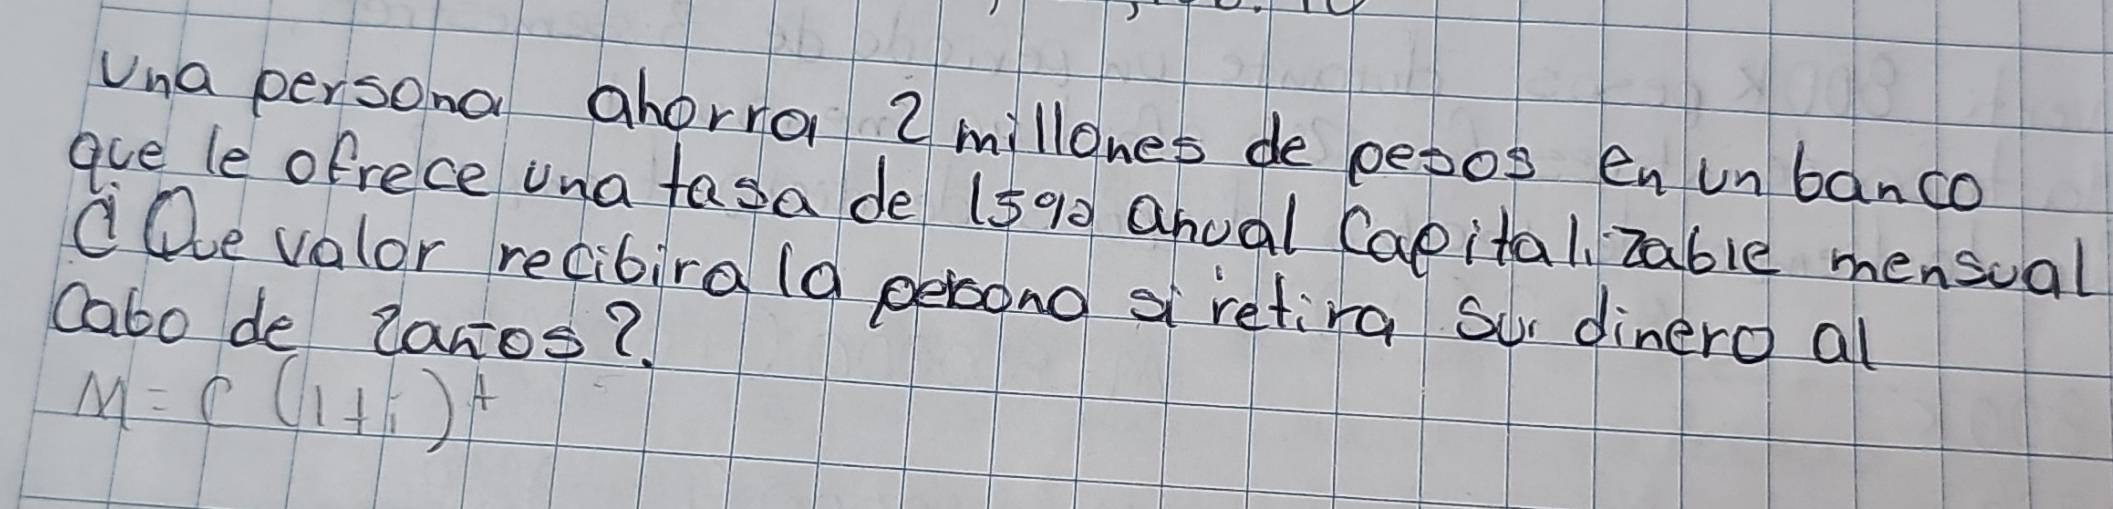 Una persona ahorra 2 millones de pesos en un banco
que le ofrece una tasa de 15% anual Capitalizable mensual
¿Que valor recibira la persona si retira su dinero al
Cabo de 2 años?.
M = C (1+i)^t